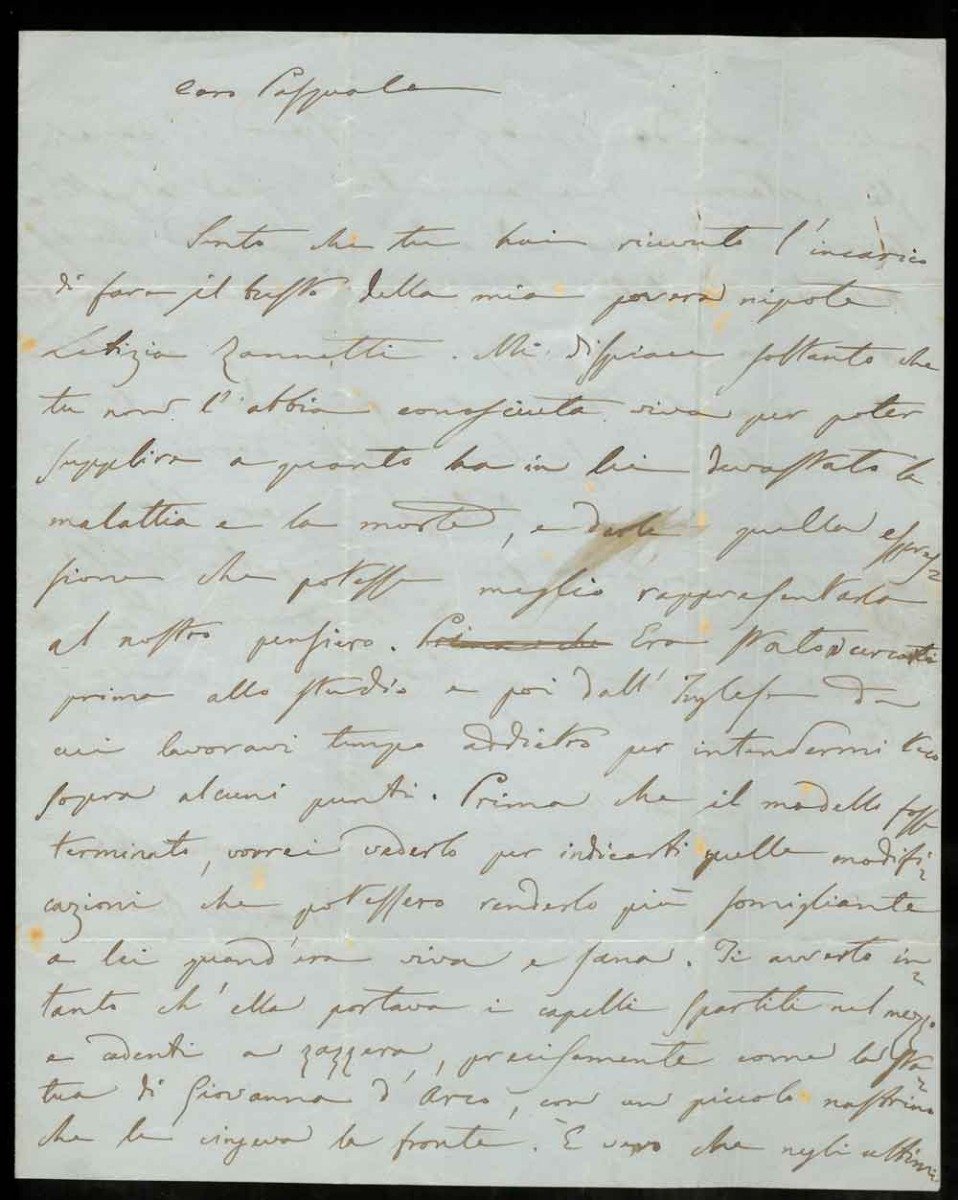 Caro Pasquale
Sento che tu hai ricevuto l'incarico
di fare il busto della mia povera nipote
Letizia Zannetti. Mi dispiace soltanto che
tu non l'abbia conosciuta viva per poter
supplire a quanto ha in lei devastato la
malattia e la morte, e darle quella espres-
sione che potesse meglio rappresentarla
al nostro pensiero. Prima che Era stato a cercarti
prima allo studio e poi dall'Inglese da
cui lavoravi tempo addietro per intendermi teco
sopra alcuni punti. Prima che il modello fosse
terminato, vorrei vederlo per indicarti quelle modifi-
cazioni che potessero renderlo più somigliante
a lei quand'era viva e sana. Ti avverto in-
tanto ch'ella portava i capelli spartiti nel mezzo
e cadenti a zazzera, precisamente come la sta-
tua di Giovanna d'Arco, con un piccolo nastrino
che le cingeva la fronte. È vero che negli ultimi